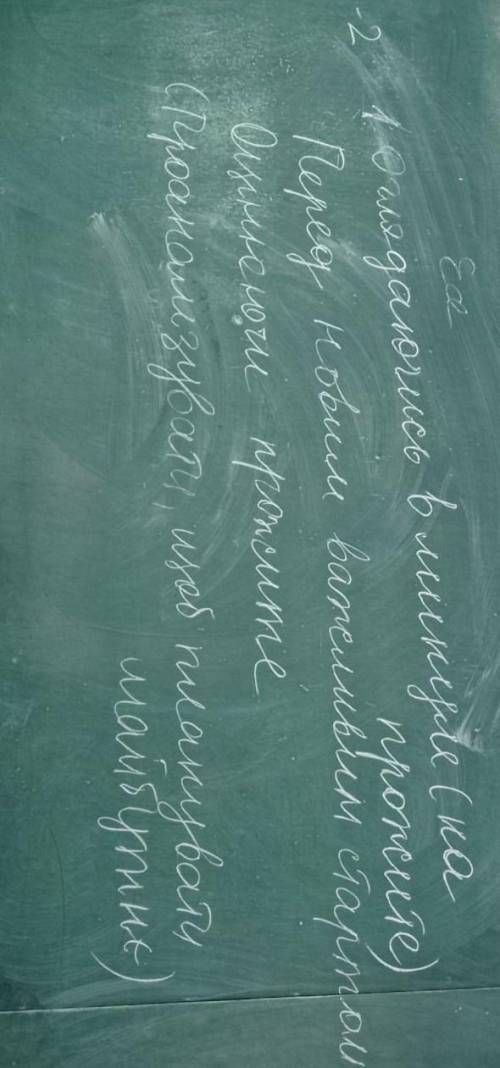 Ед
-2 1 Оглядаючись в минуле (на
прожите)
Перед новим важливым стартом
Оцінюючи прожите
(Проаналізувати, щоб планувати
майбутнє)